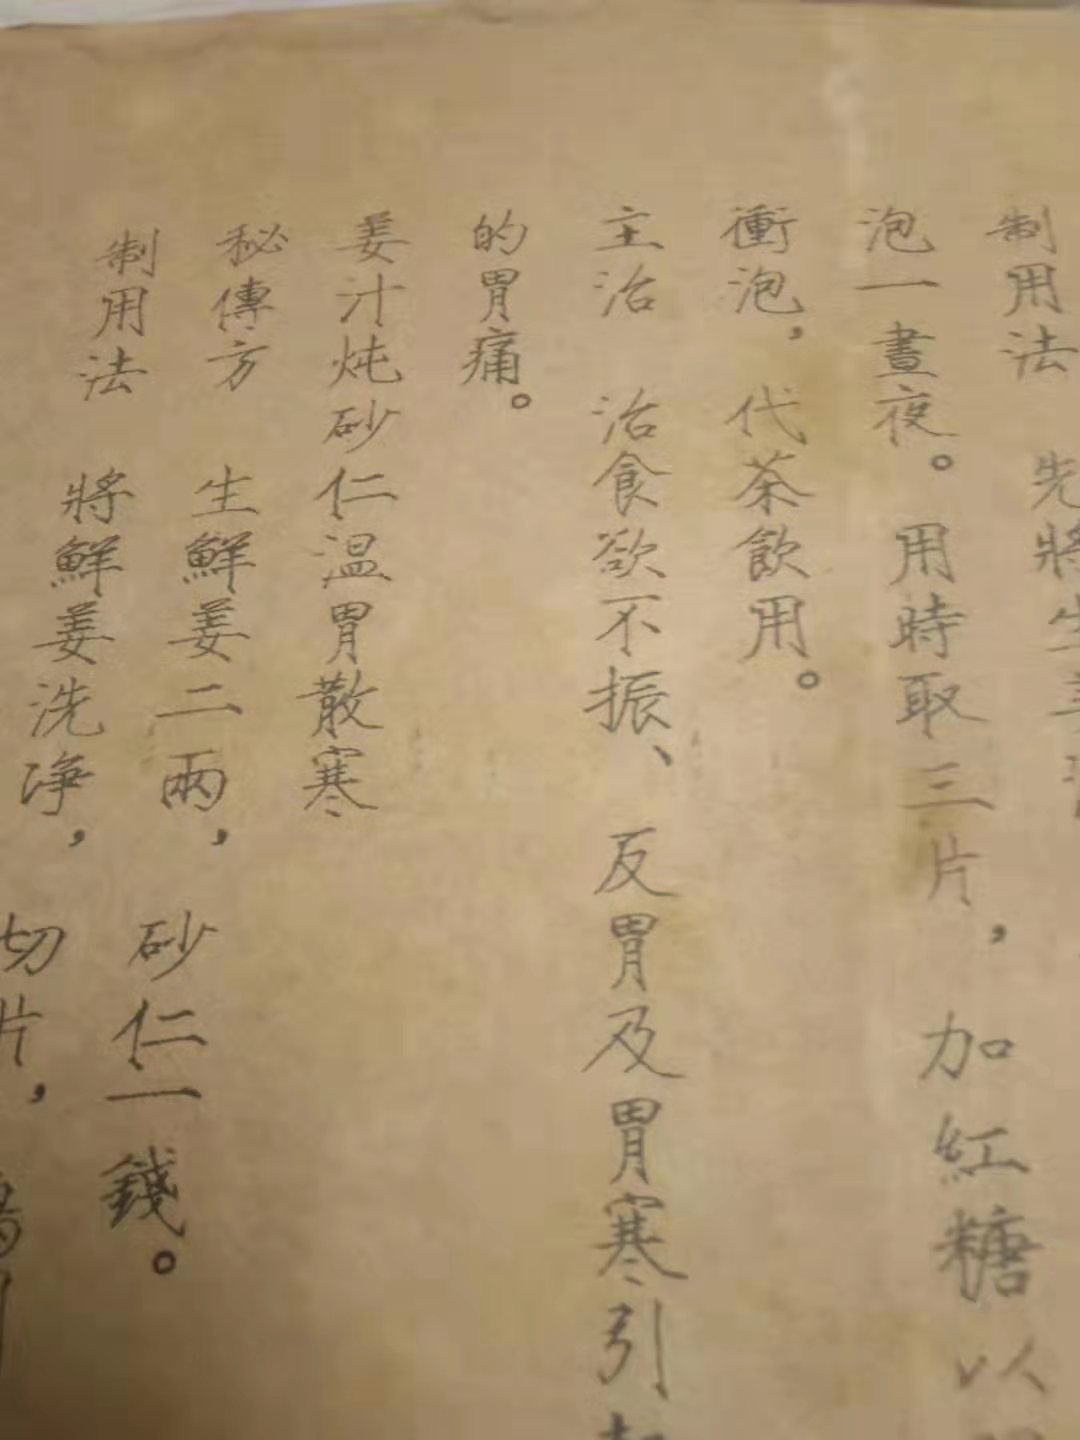 制用法 先將生姜
泡一晝夜。用時取三片，加紅糖以
衝泡，代茶飲用。
主治 治食欲不振、反胃及胃寒引
的胃痛。
姜汁炖砂仁温胃散寒
秘傳方 生鮮姜二兩，砂仁一錢。
制用法 將鮮姜洗净，切片，